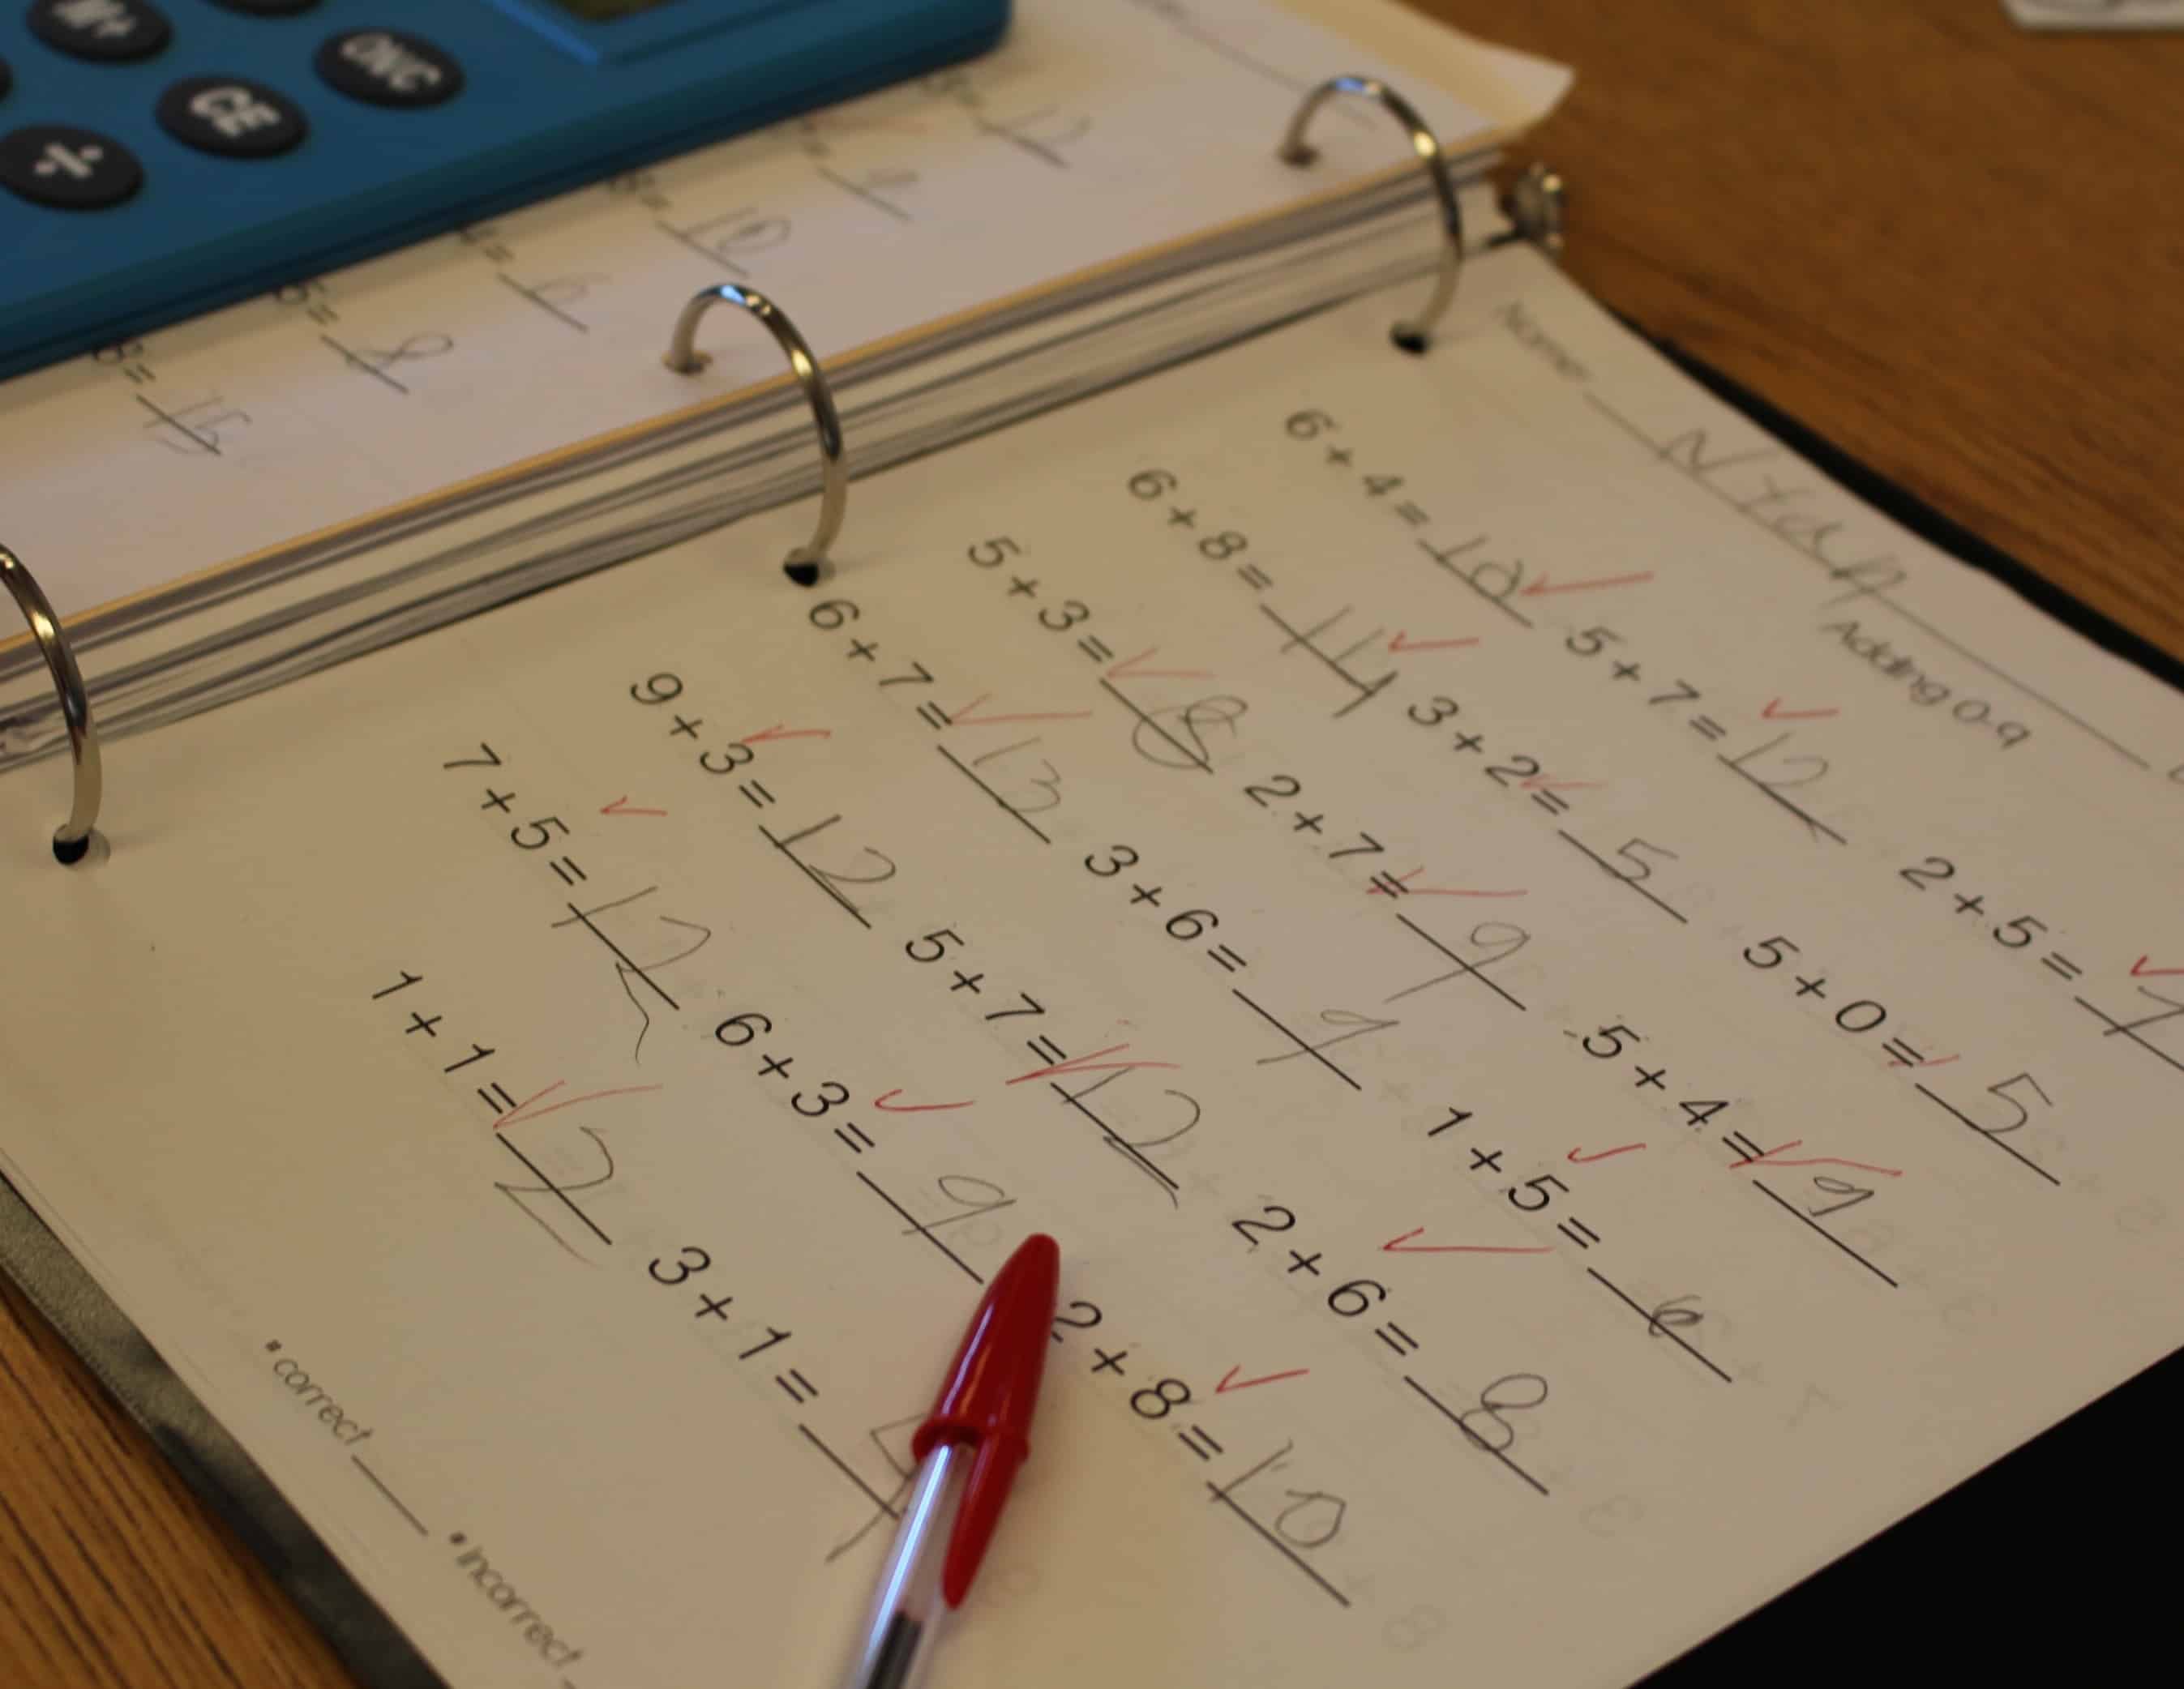 M+
ONC
CE
÷
8= 15
5= 8
= 6
8= 10
Name
Adding 0-9
6+4=10 5+7=12 2+5=7
6+8=14 3+2=5 5+0=5
5+3=8 2+7=9 5+4=9
6+7=13 3+6=9 1+5=6
9+3=12 5+7=12 2+6=8
7+5=12 6+3=9 2+8=10
1+1=2 3+1=4
▪ correct ▪ incorrect